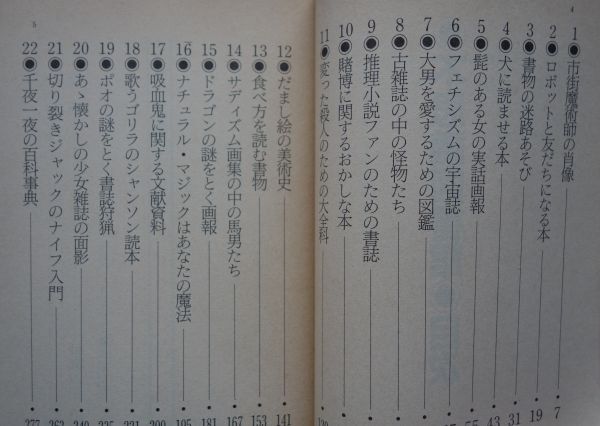 4
1●市街魔術師の肖像 7
2●ロボットと友だちになる本 19
3●書物の迷路あそび 31
4●犬に読ませる本 43
5●髭のある女の実話画報 55
6●フェチシズムの宇宙誌
7●大男を愛するための図鑑
8●古雑誌の中の怪物たち
9●推理小説ファンのための書誌
10●賭博に関するおかしな本
11●変った殺人のための大全科
5
12●だまし絵の美術史 141
13●食べ方を読む書物 153
14●サディズム画集の中の馬男たち 167
15●ドラゴンの謎をとく画報 181
16●ナチュラル・マジックはあなたの魔法 195
17●吸血鬼に関する文献資料 209
18●歌うゴリラのシャンソン読本 221
19●ポオの謎をとく書誌狩猟 235
20●あゝ懐かしの少女雑誌の面影 249
21●切り裂きジャックのナイフ入門 263
22●千夜一夜の百科事典 277